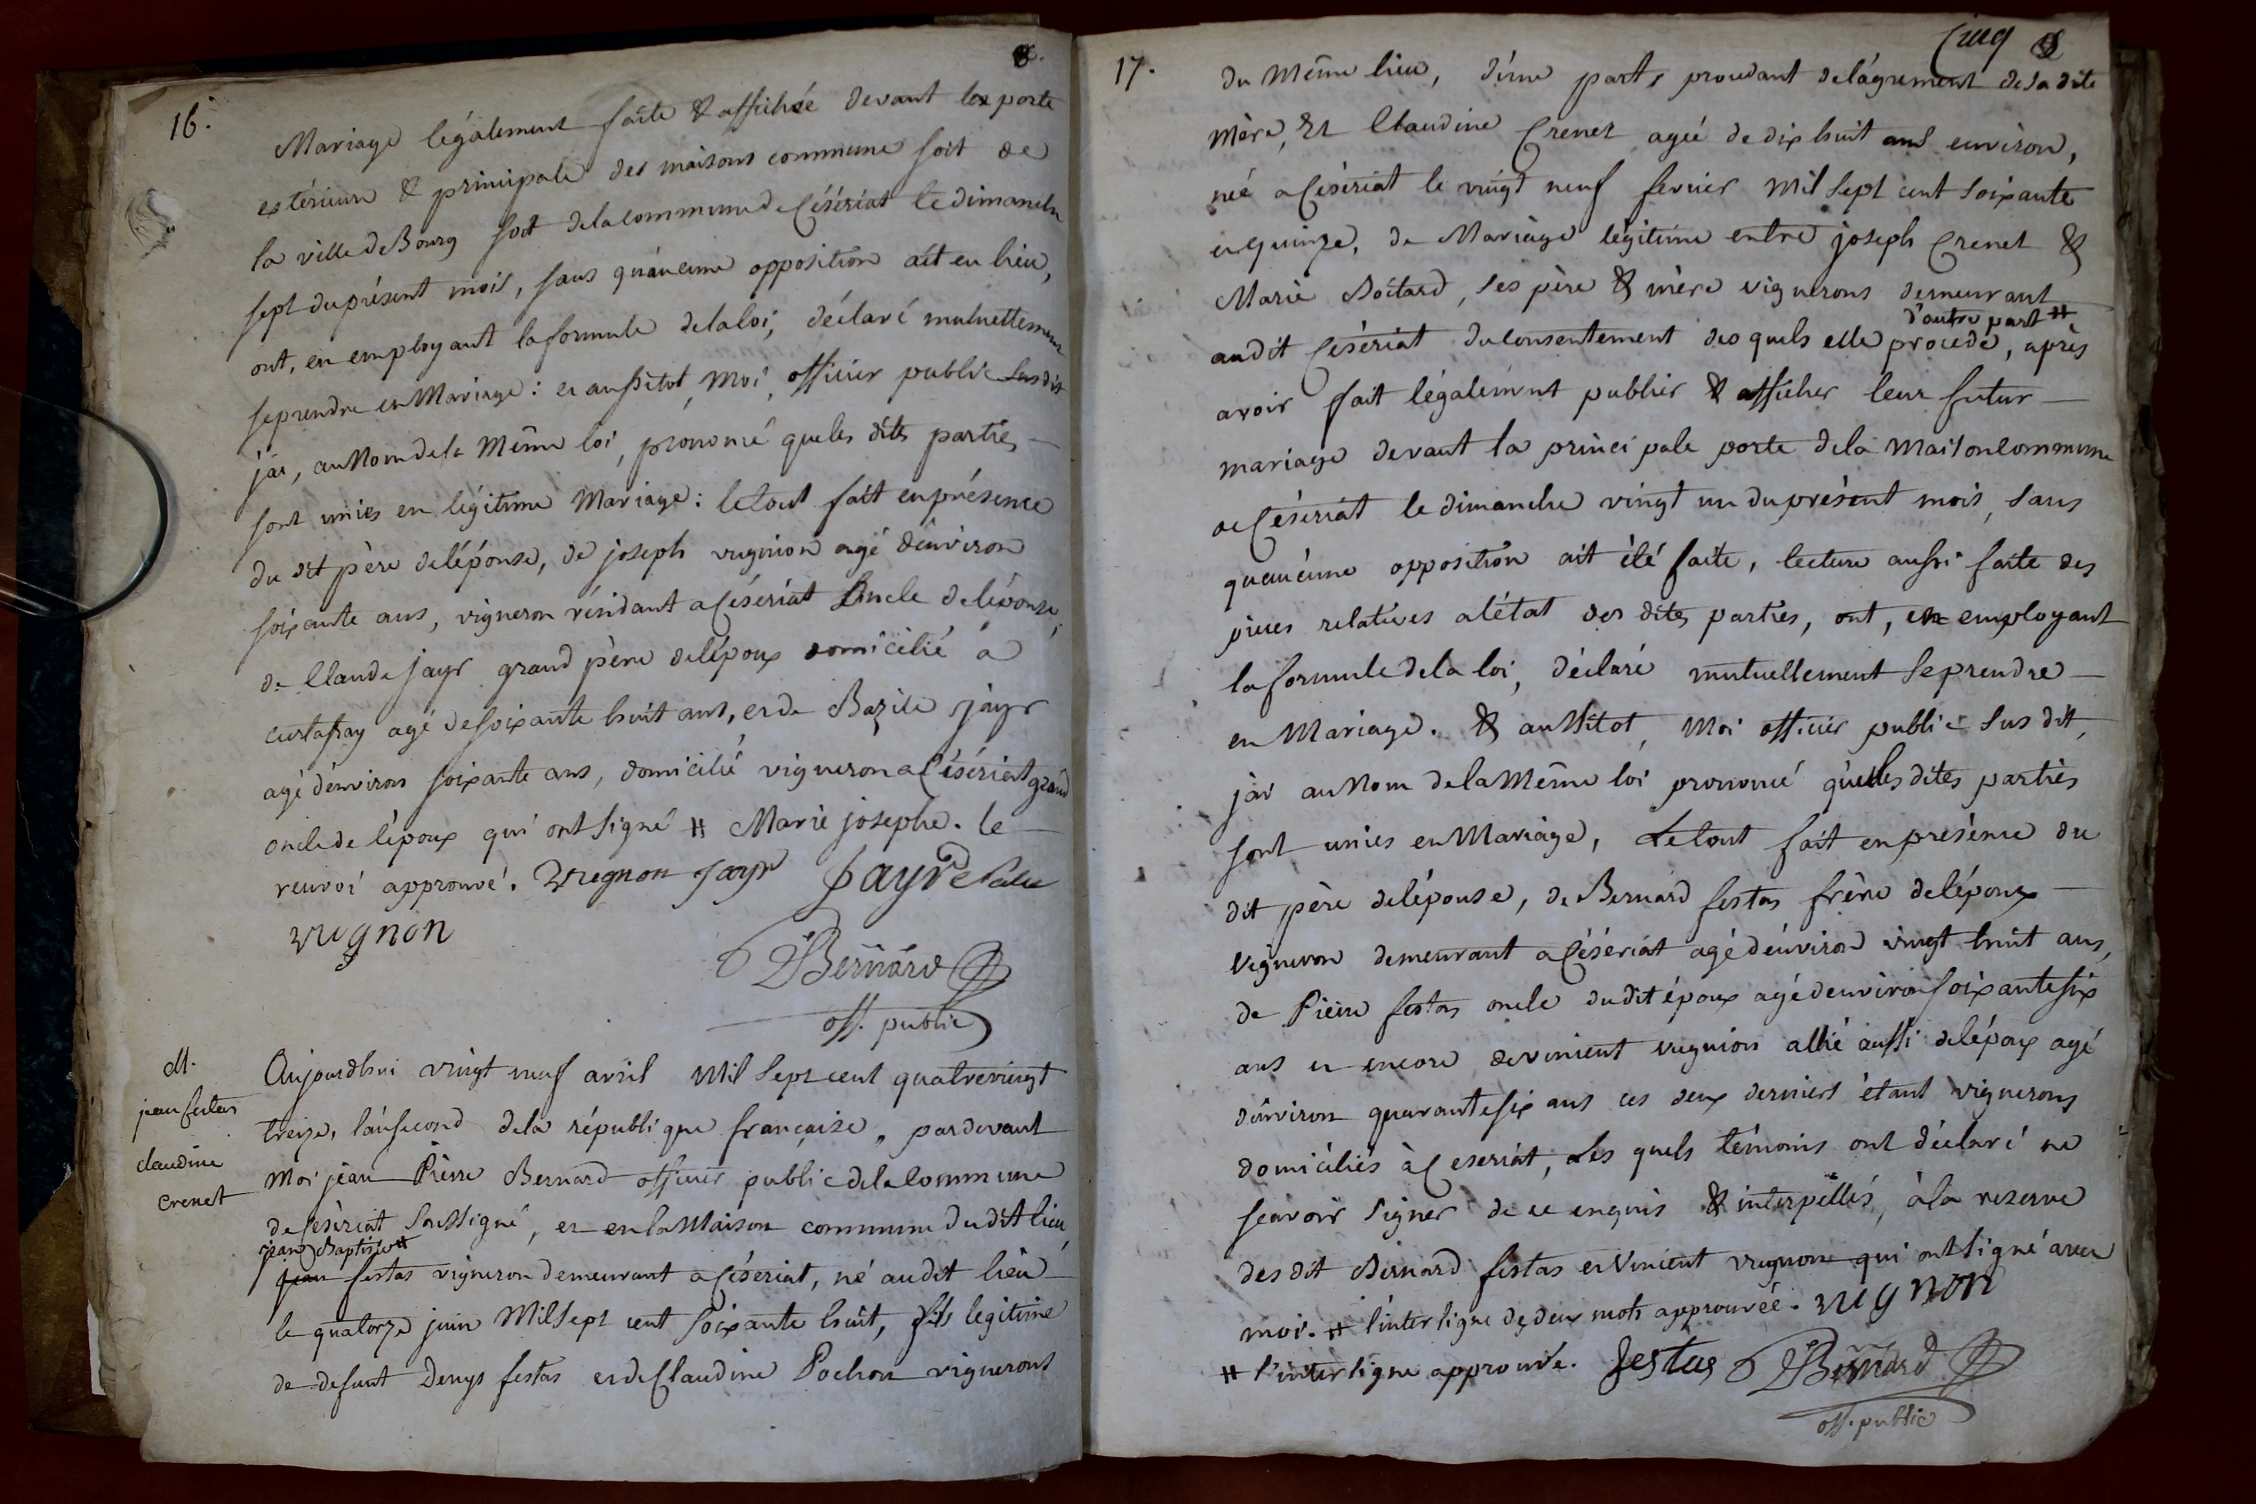 16.
Mariage légalement faite & affichée devant la porte
extérieure & principale des maisons commune soit de
la ville de Bourg soit de la commune de Césériat le dimanche
sept du présent mois, sans qu'aucune opposition ait eu lieu,
ont, en employant la formule de la loi, déclaré mutuellement
se prendre en Mariage : et aussitot, Moi, officier public susdit
j'ai, au Nom de la Même loi, prononcé que les dites parties
sont unies en légitime Mariage : le tout fait en présence
du dit père de l'épouse, de joseph vugnon agé d'environ
soixante ans, vigneron résidant a Céseriat oncle de l'épouse,
de Claude jayr grand père de l'époux domicilié à
curtafray agé de soixante huit ans, et de Bazile jayr
agé d'environ soixante ans, domicilié vigneron a Césériat grand
oncle de l'époux qui ont signé # Marie josephe. le
renvoi approuvé. Vugnon Jayr Jayr
vugnon
Bernard
off. public
M.
jean festas
claudine
crenet
Aujourdhui vingt neuf avril Mil Sept cent quatrevingt
treize, l'an second de la république française, pardevant
Moi jean Pierre Bernard officier public de la Commune
de Céseriat soussigné, et en la Maison commune du dit lieu,
jean Baptiste #
jean festas vigneron demeurant a Céseriat, né au dit lieu
le quatorze juin Mil Sept cent soixante huit, fils legitime
de defunt Denys festas et de Claudine Pochon vignerons
Cinq
17.
du Même lieu, d'une part, procedant de l'agrement de sa dite
Mère, Et Claudine Crenet agée de dix huit ans environ,
née a Céseriat le vingt neuf fevrier Mil Sept cent soixante
et quinze, de Mariage légitime entre joseph Crenet &
Marie Boitard, ses père & mère vignerons demeurant
d'autre part #
audit Céseriat du consentement des quels elle procede, après
avoir fait légalement publier & afficher leur futur
mariage devant la principale porte de la Maison commune
de Céseriat le dimanche vingt un du présent mois, sans
qu'aucune opposition ait été faite, lecture aussi faite des
pieces relatives a l'état des dites parties, ont, en employant
la formule de la loi, déclaré mutuellement se prendre
en Mariage. & aussitot, Moi officier public sus dit,
j'ai au Nom de la Même loi prononcé que les dites parties
sont unies en Mariage, Le tout fait en présence du
dit père de l'épouse, de Bernard festas frère de l'époux
vigneron demeurant a Céseriat agé d'environ vingt huit ans,
de Pierre festas oncle du dit époux agé d'environ soixante six
ans et encore de vincent vugnion allié aussi de l'époux agé
d'environ quarante six ans ces deux derniers étant vignerons
domiciliés à Ceseriat, Les quels témoins ont déclaré ne
scavoir signer de ce enquis & interpellés, à la reserve
des dit Bernard festas et Vincent vugnon qui ont signé avec
moi. # l'interligne de deux mots approuvée. vugnon
# l'interligne approuvée. festas Bernard
off. public